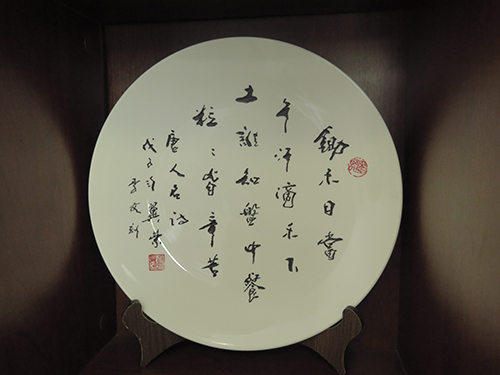 鋤禾日當
午汗滴禾下
土誰知盤中餐
粒々皆辛苦
唐人名詩
戊子年